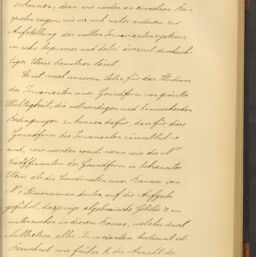 erkennen, denn wir werden an einzelnen Bei-
spielen zeigen, wie er sich unter anderen zur
Aufstellung des vollen Invariantensystems
in sehr bequemer und dabei durchsich-
tiger Weise benutzen lässt.
Da ist nach unserem Satze für das Studium
der Invarianten einer Grundform von
Wichtigkeit, die notwendigen und hinreichenden
Bedingungen zu kennen dafür, dass für diese
Grundform die Invarianten sämmtlich
sind, wir werden somit, wenn wir die N
Coefficienten der Grundform in bekannter
Weise als die Coordinaten eines Raumes von
N Dimensionen deuten, auf die Aufgabe
geführt, dasjenige algebraische Gebilde Z zu
untersuchen in diesem Raume, welches durch
Nullsetzen aller Invarianten bestimmt ist
Bezeichnet wie früher k die Anzahl der